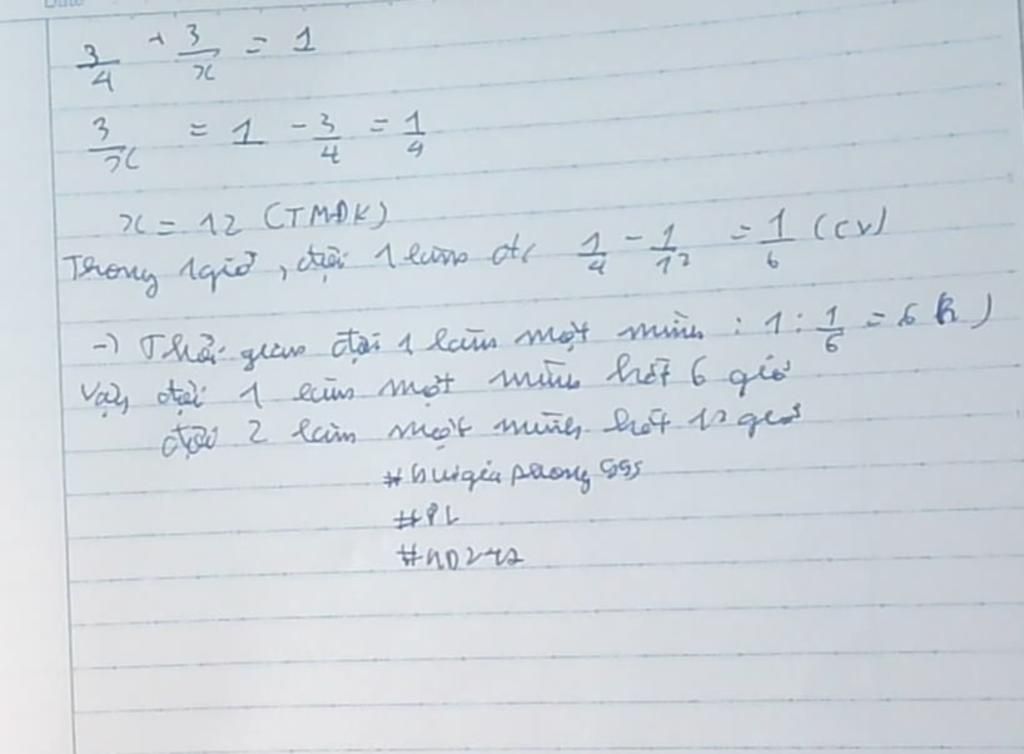 3/4 + 3/x = 1
3/x = 1 - 3/4 = 1/4
x = 12 (TMĐK)
Trong 1 giờ, đội 1 làm đc 1/4 - 1/12 = 1/6 (cv)
-) Thời gian đội 1 làm một mình : 1 : 1/6 = 6 h)
Vậy đội 1 làm một mình hết 6 giờ
đội 2 làm một mình hết 12 giờ
#buigia
#PL